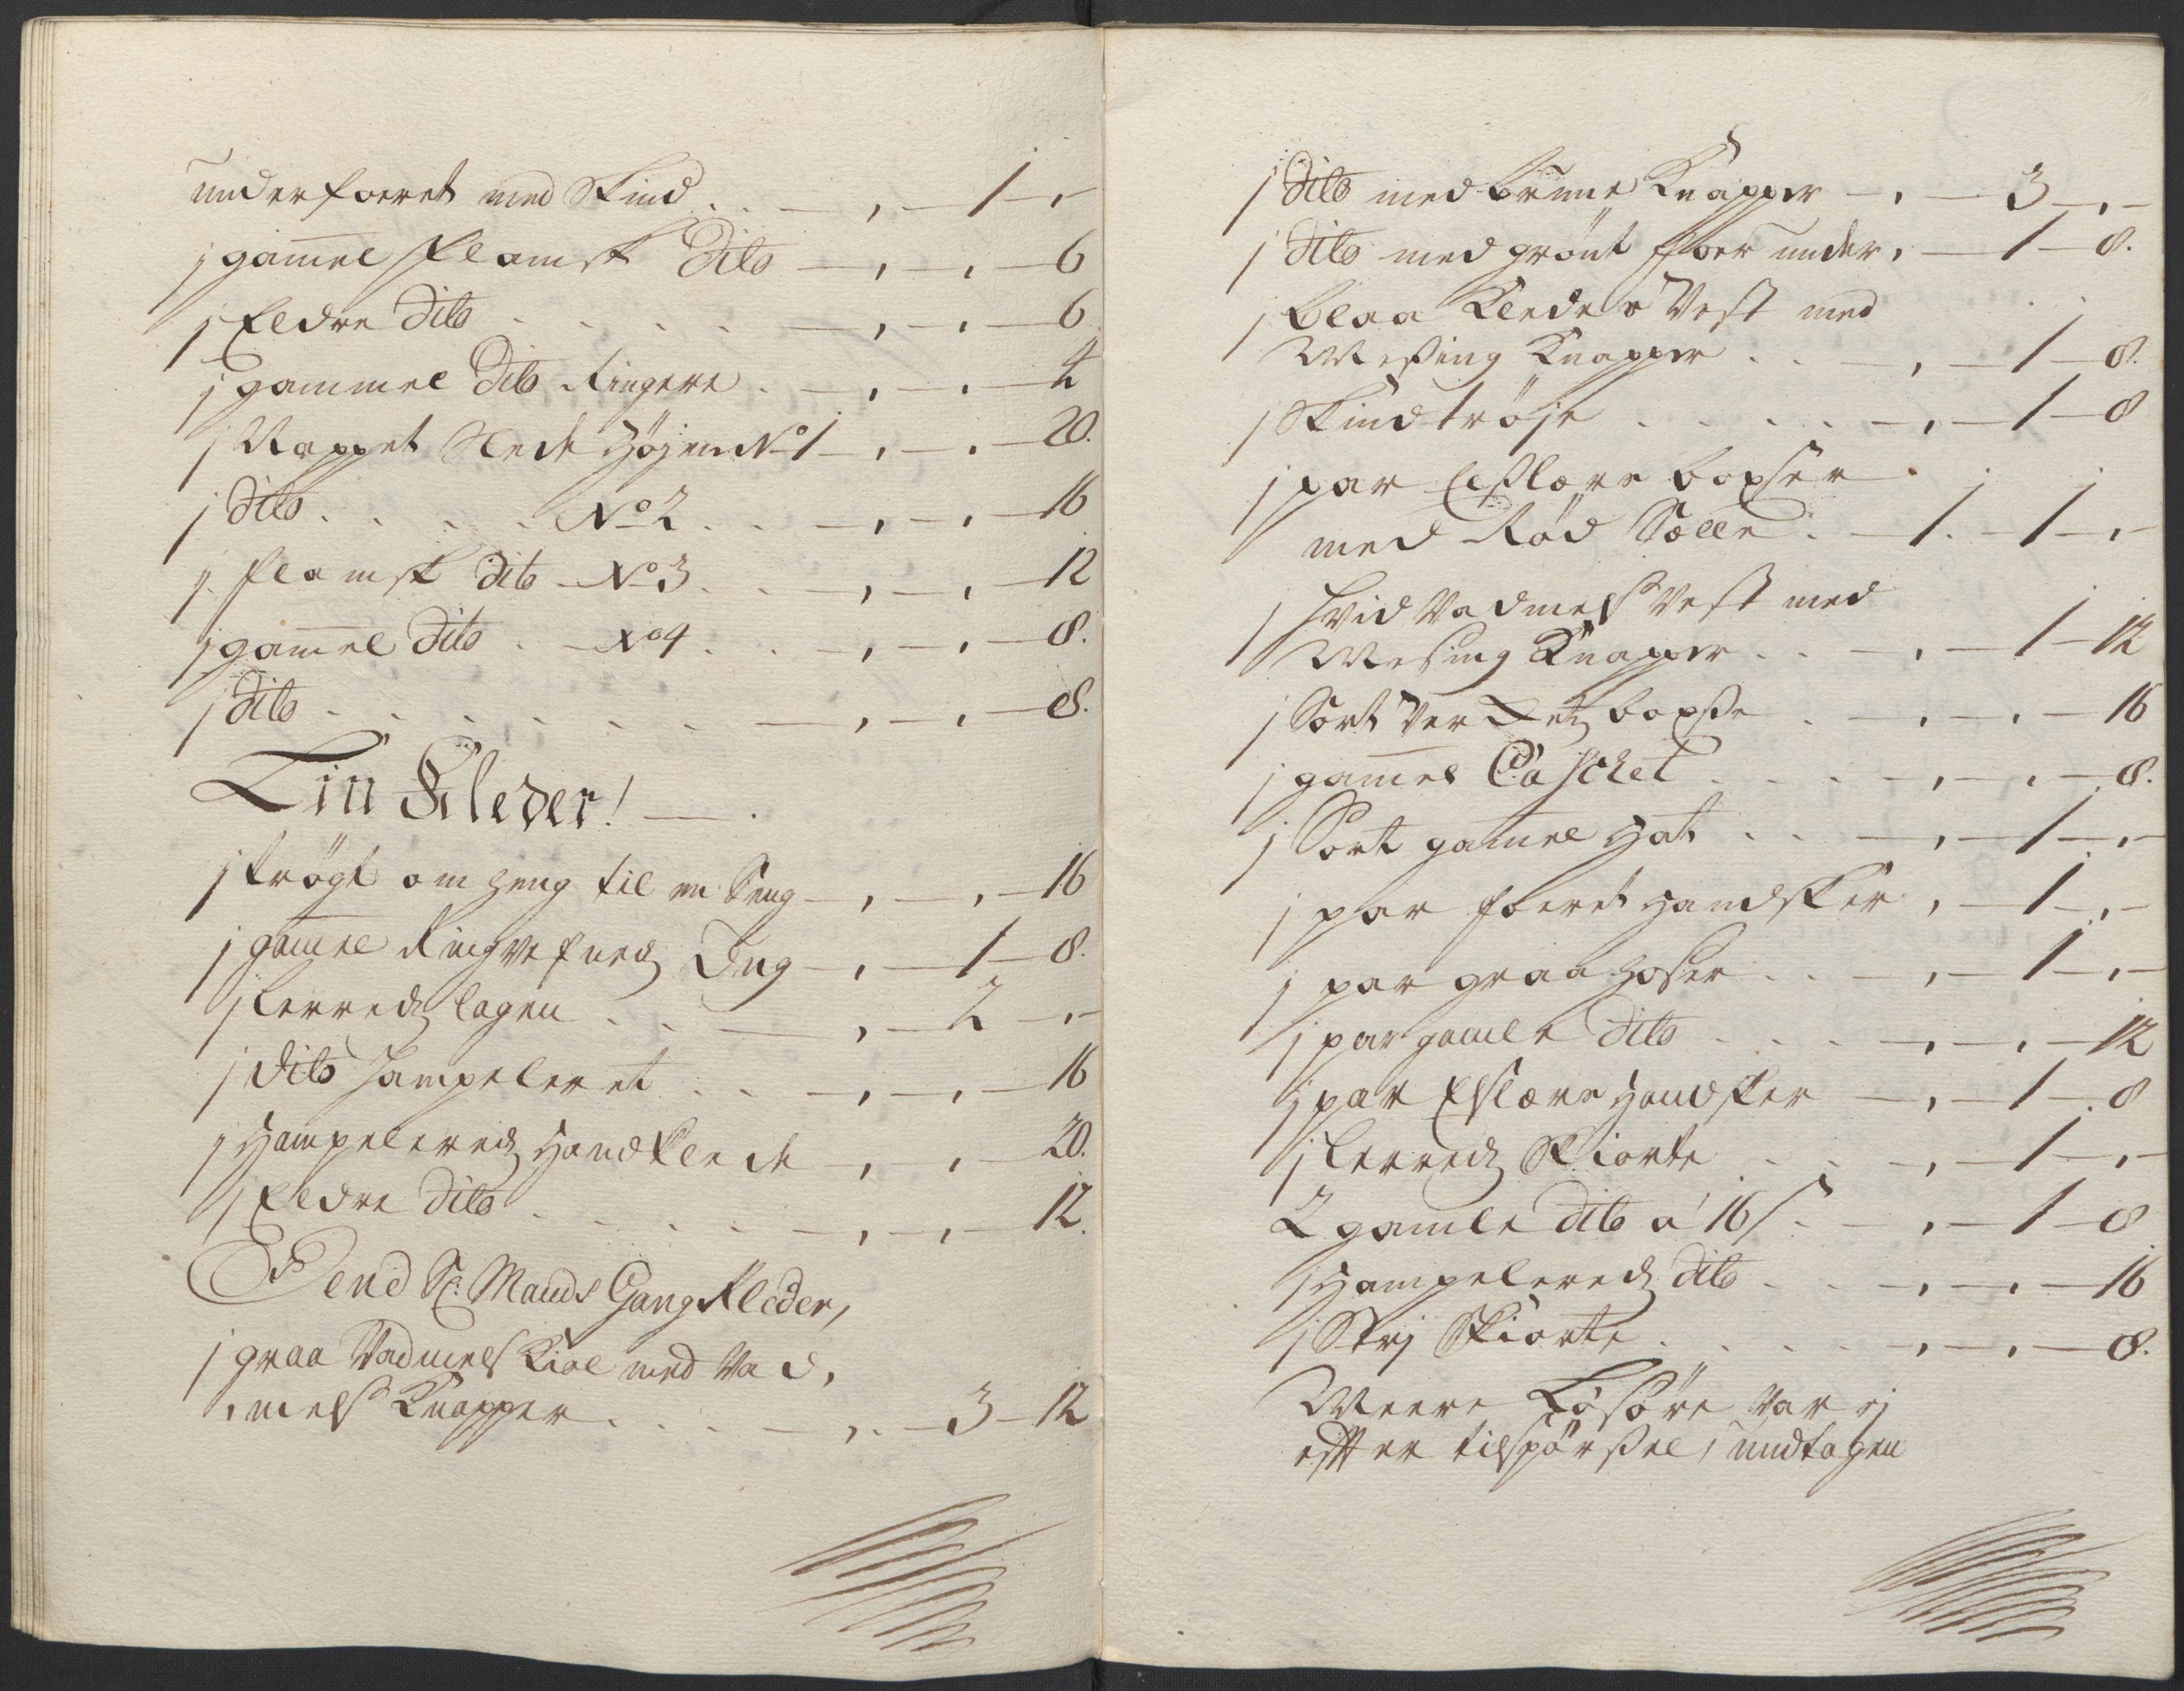 underforret med Skind . . — , — 1 — , —
j gam̅el flamsk Dito — , — , — 6
j Eldre dito . . . . — , — , — 6
j gammel Dito Ringere . — , — , — 4
j Nappet Slede Høyende No 1 — , — , — 20.
j dito . . . . No 2 . . — , — , — 16
j flamsk dito No 3 . . — , — , — 12
j gam̅el dito . No 4 . . — , — , — 8.
j dito . . . . . . — , — , — 8.
Lin Klæder! — .
j trøgt omheng til en Seng — , — , — 16
j gam̅el Ringvefved Dug — , — 1 — 8.
j lerreds lagen . . — , — 2 — , —
j dito hampeleret . . — , — , — 16
j Hampelereds Handklede — , , — 20.
j Eldre dito . . . . — , — , — 12.
Dend Sl: Mands Gang Kleder,
j graa Vadmels Kiol med Vad,
,mels Knapper . . . — , . — 3 — 12
j dito med brune Knapper — , — 3 — , —
j dito med grønt foer under , — 1 — 8.
j blaa Kledes Vest med
Messing Knapper . . — , — 1 — 8.
j Skind trøje . . . . — , — 1 — 8
j par Eslærs boxser . . .
med Rød Sælle . — 1 . — 1 — , —
j hvid Vadmels Vest med
Mesing Knapper . . — , — 1 — 12
j Sort boxse . — , — , — 16
j gam̅el Caschet . . . — , — , — 8.
j Sort gam̅el Hat . . — , — 1 — , —
j par foeret Handsker , — 1 — , —
j par graa Hoser . . — , — 1 — , —
j par gamle dito . . . — , — , — 12
j par Eslærs Handsker — , — 1 — 8
j lerreds Skiorte . . — , — 1 — , —
2 gamle dito a' 16 s . — , — 1 — 8
j Hampelereds dito . . — , — , — 16
j Strj Skiorte . . . . — , — , — 8.
Meere Løsøre var ej
efter tilspørsel, undtagen